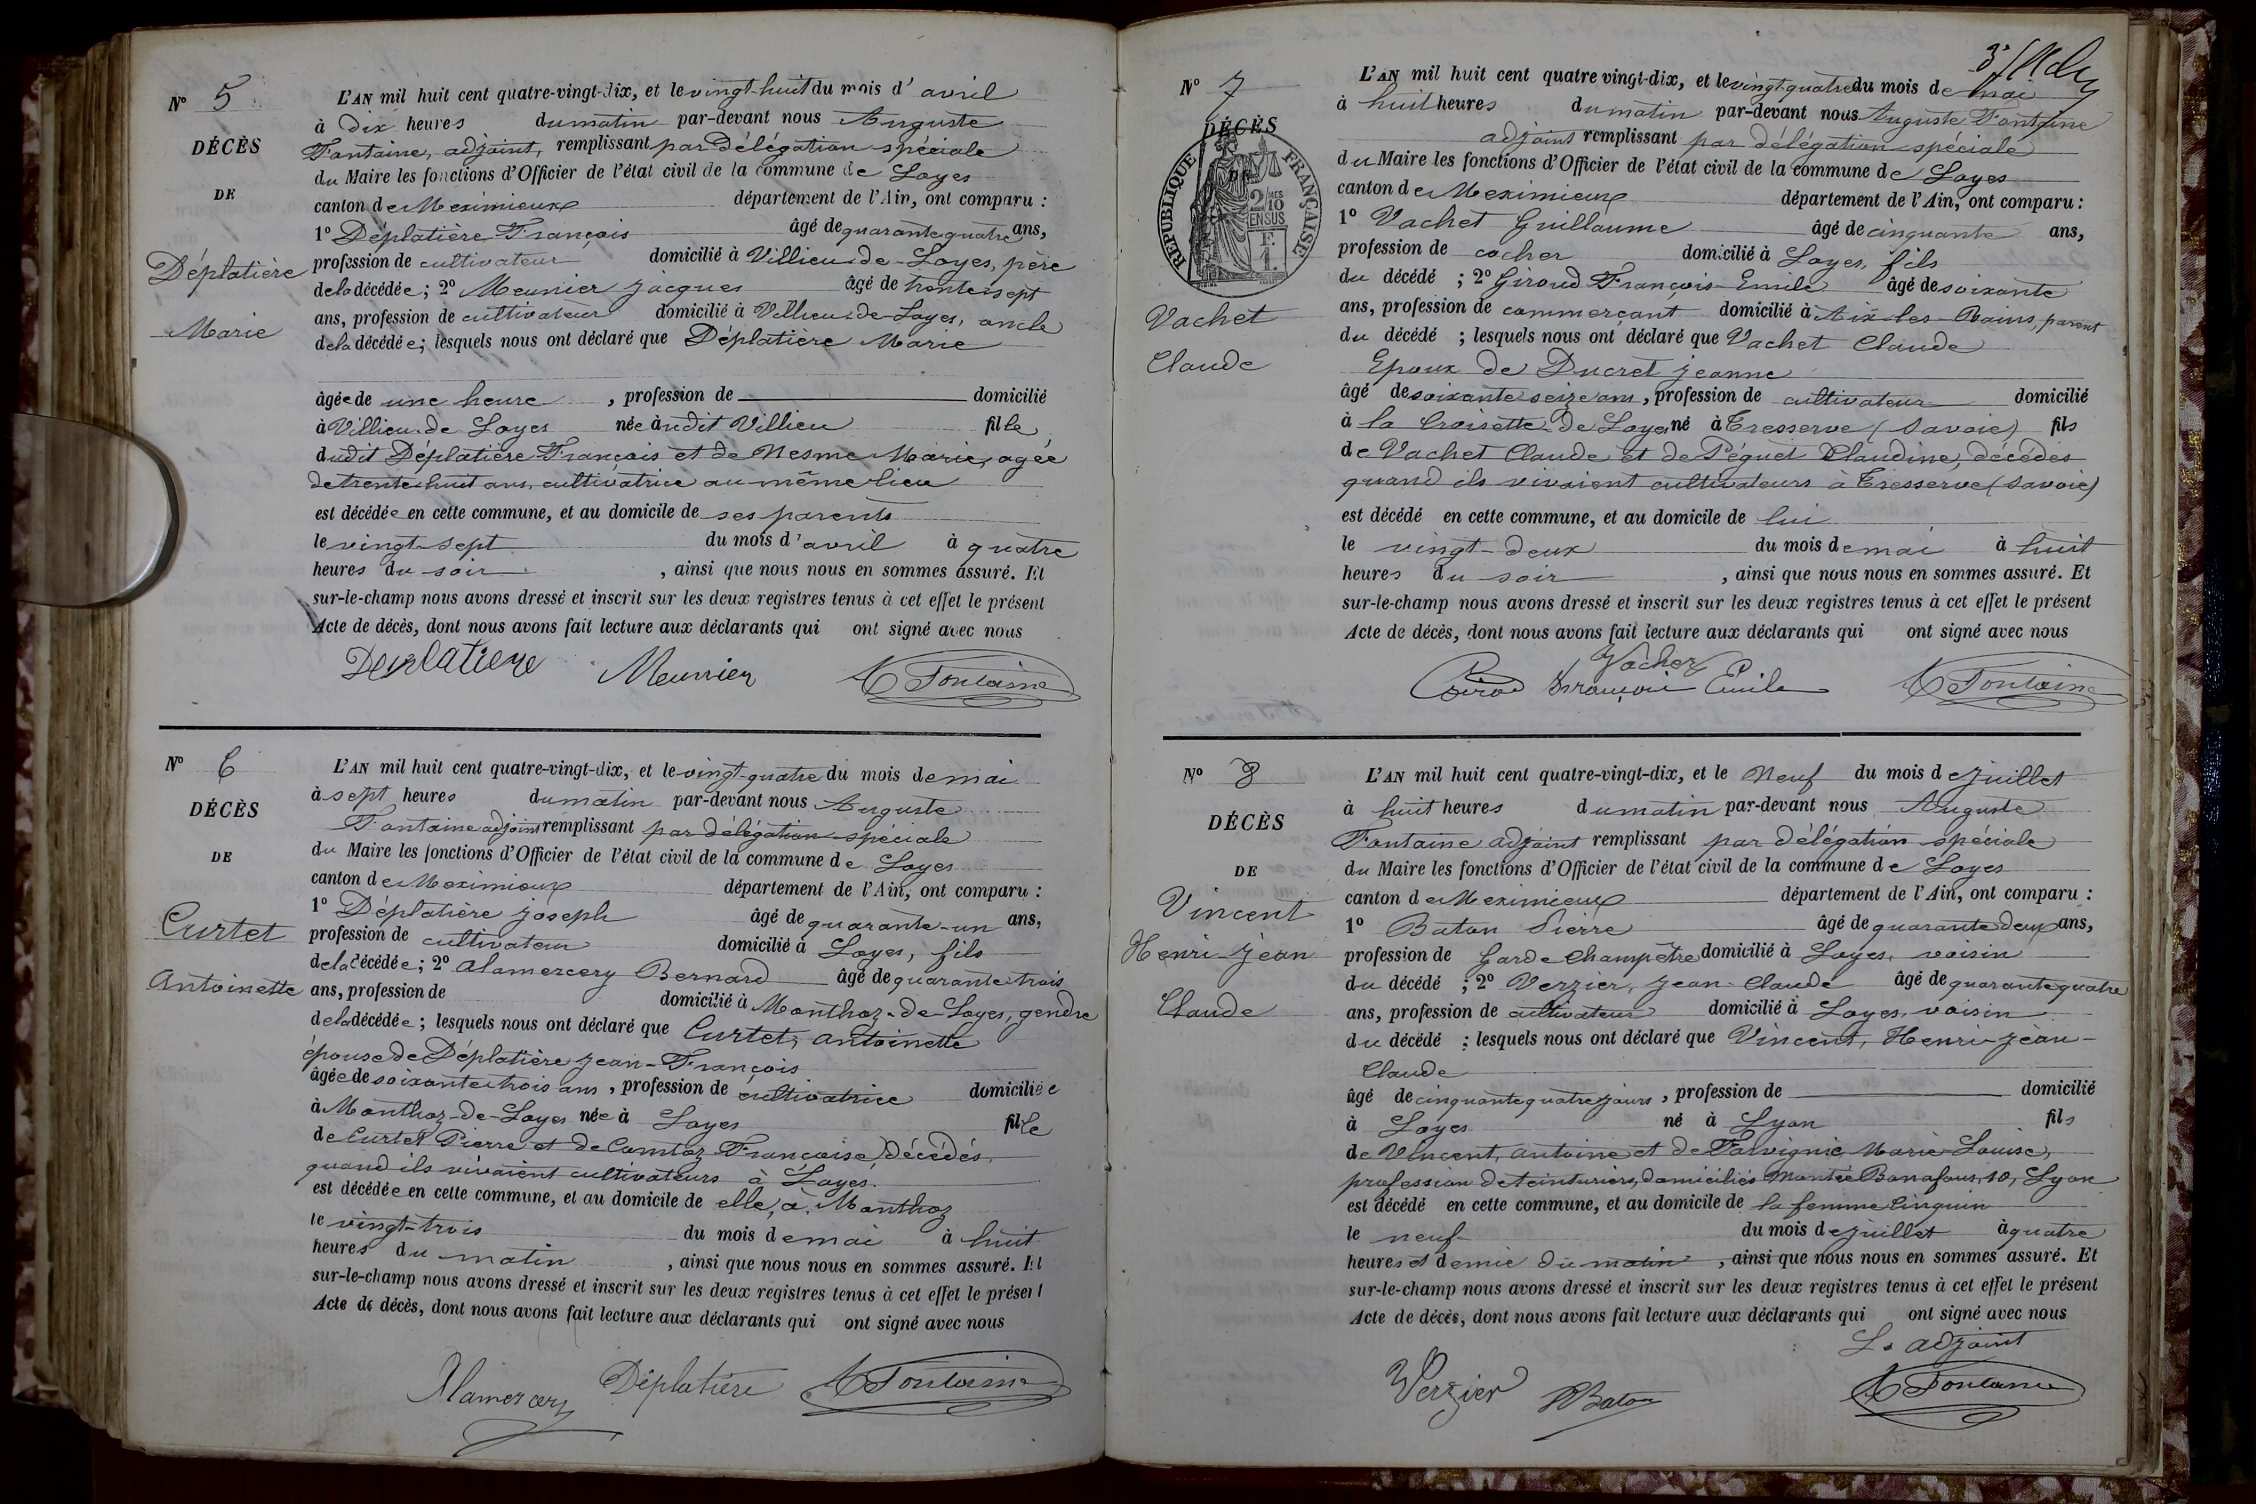 N° 5
DÉCÈS
DE
Déplatière
Marie
L'AN mil huit cent quatre-vingt-dix, et le vingt-huit du mois d'avril
à dix heures du matin par-devant nous Auguste
Fontaine, adjoint, remplissant par délégation spéciale
du Maire les fonctions d'Officier de l'état civil de la commune de Loyes
canton de Meximieux département de l'Ain, ont comparu :
1° Déplatière François âgé de quarante quatre ans,
profession de cultivateur domicilié à Villieu-de-Loyes, père
de la décédée; 2° Meunier jacques âgé de trente sept
ans, profession de cultivateur domicilié à Villieu-de-Loyes, oncle
de la décédée; lesquels nous ont déclaré que Déplatière Marie
âgée de une heure, profession de domicilié
à Villieu-de Loyes née audit Villieu fille
dudit Déplatière François et de Nesme Marie, agée
de trente huit ans, cultivatrice au même lieu
est décédée en cette commune, et au domicile de ses parents
le vingt-sept du mois d'avril à quatre
heures du soir, ainsi que nous nous en sommes assuré. Et
sur-le-champ nous avons dressé et inscrit sur les deux registres tenus à cet effet le présent
Acte de décès, dont nous avons fait lecture aux déclarants qui ont signé avec nous
Deplatiere Meunier A Fontaine
N° 6
DÉCÈS
DE
Curtet
Antoinette
L'AN mil huit cent quatre-vingt-dix, et le vingt-quatre du mois de mai
à sept heures du matin par-devant nous Auguste
Fontaine adjoint remplissant par délégation spéciale
du Maire les fonctions d'Officier de l'état civil de la commune de Loyes
canton de Meximieux département de l'Ain, ont comparu :
1° Déplatière joseph âgé de quarante-un ans,
profession de cultivateur domicilié à Loyes, fils
de la décédée; 2° Alamercery Bernard âgé de quarante trois
ans, profession de domicilié à Monthoz-de-Loyes, gendre
de la décédée; lesquels nous ont déclaré que Curtet, antoinette
épouse de Déplatière jean-François
âgée de soixante trois ans, profession de cultivatrice domiciliée
à Monthoz-de-Loyes née à Loyes fille
de Curtet Pierre et de Comtoz Françoise, décédés,
quand ils vivaient cultivateurs à Loyes.
est décédée en cette commune, et au domicile de elle, à Monthoz
le vingt-trois du mois de mai à huit
heures du matin, ainsi que nous nous en sommes assuré. Et
sur-le-champ nous avons dressé et inscrit sur les deux registres tenus à cet effet le présent
Acte de décès, dont nous avons fait lecture aux déclarants qui ont signé avec nous
Alamercery Déplatière A Fontaine
N° 7
DÉCÈS
DE
RÉPUBLIQUE FRANÇAISE
2/10 EN SUS
Vachet
Claude
L'AN mil huit cent quatre vingt-dix, et le vingt-quatre du mois de mai
à huit heures du matin par-devant nous Auguste Fontaine
adjoint remplissant par délégation spéciale
du Maire les fonctions d'Officier de l'état civil de la commune de Loyes
canton de Meximieux département de l'Ain, ont comparu :
1° Vachet Guillaume âgé de cinquante ans,
profession de cocher domicilié à Loyes, fils
du décédé ; 2° Giroud François-Emile âgé de soixante
ans, profession de commerçant domicilié à Aix-les-Bains, parent
du décédé ; lesquels nous ont déclaré que Vachet Claude
Epoux de Ducret jeanne
âgé de soixante seize ans, profession de cultivateur domicilié
à la Croisette-de Loyes né à Tresserve (Savoie) fils
de Vachet Claude et de Péguet Claudine, décédés
quand ils vivaient cultivateurs à Tresserve (Savoie)
est décédé en cette commune, et au domicile de lui
le vingt-deux du mois de mai à huit
heures du soir, ainsi que nous nous en sommes assuré. Et
sur-le-champ nous avons dressé et inscrit sur les deux registres tenus à cet effet le présent
Acte de décès, dont nous avons fait lecture aux déclarants qui ont signé avec nous
Vachez
François Emile A Fontaine
N° 8
DÉCÈS
DE
Vincent
Henri jean
Claude
L'AN mil huit cent quatre-vingt-dix, et le Neuf du mois de juillet
à huit heures du matin par-devant nous Auguste
Fontaine adjoint remplissant par délégation spéciale
du Maire les fonctions d'Officier de l'état civil de la commune de Loyes
canton de Meximieux département de l'Ain, ont comparu :
1° Baton Pierre âgé de quarante deux ans,
profession de Garde Champêtre domicilié à Loyes, voisin
du décédé ; 2° Verzier, jean-Claude âgé de quarante quatre
ans, profession de cultivateur domicilié à Loyes, voisin
du décédé ; lesquels nous ont déclaré que Vincent, Henri-jean-
Claude
âgé de cinquante quatre jours, profession de domicilié
à Loyes né à Lyon fils
de Vincent, antoine et de Marie Louise,
profession de teinturiers, domiciliés Montée Bonafous, 10, Lyon
est décédé en cette commune, et au domicile de la femme Cinquin
le neuf du mois de juillet à quatre
heures et demie du matin, ainsi que nous nous en sommes assuré. Et
sur-le-champ nous avons dressé et inscrit sur les deux registres tenus à cet effet le présent
Acte de décès, dont nous avons fait lecture aux déclarants qui ont signé avec nous
L. adjoint
Verzier PBaton A Fontaine